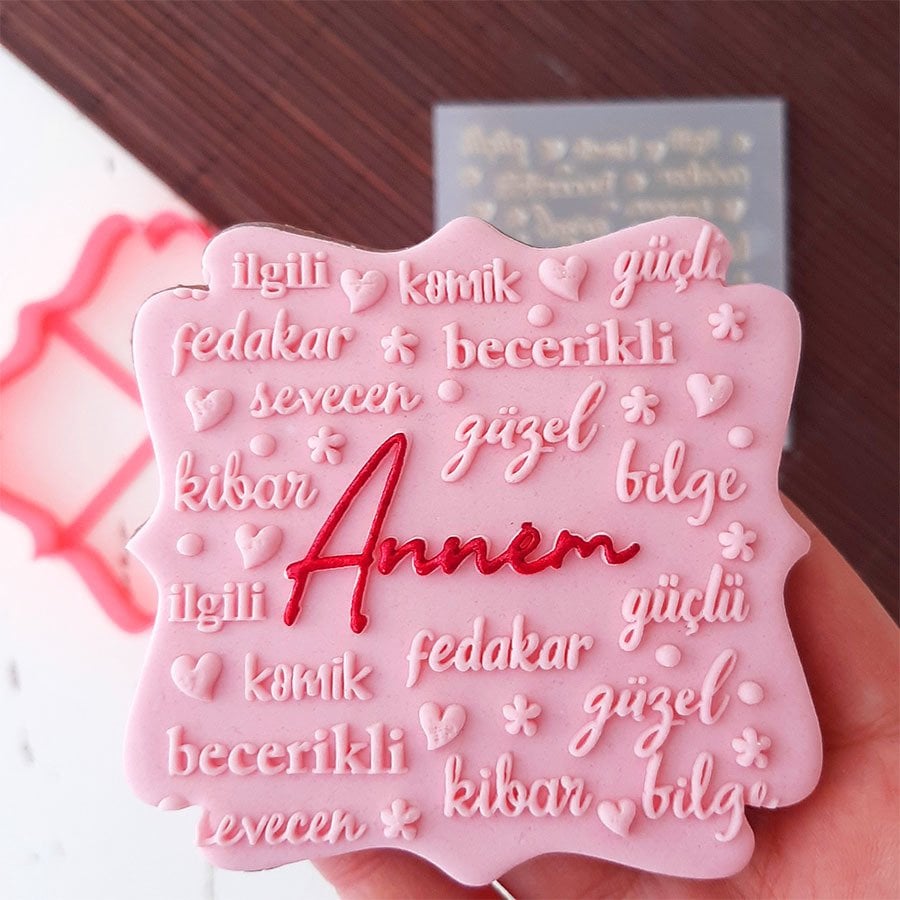 ilgili komik güçlü
fedakar becerikli
sevecen güzel
kibar bilge
Annem
ilgili güçlü
fedakar
komik güzel
becerikli
kibar bilge
sevecen